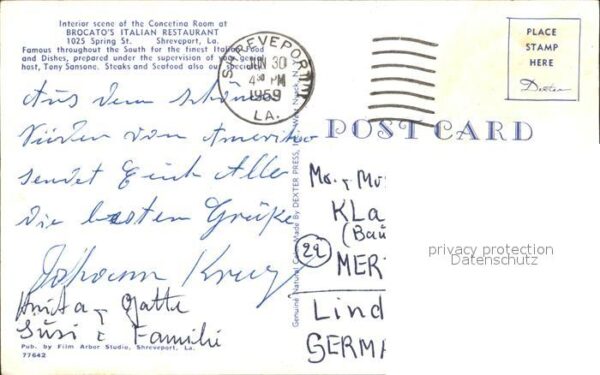 Interior scene of the Concetina Room at
BROCATO'S ITALIAN RESTAURANT
1025 Spring St. Shreveport, La.
Famous throughout the South for the finest Italian Food
and Dishes, prepared under the supervision of your genial
host, Tony Sansone. Steaks and Seafood also our specialty.
SHREVEPORT
JUN 30
4 30 PM
1959
LA.
PLACE
STAMP
HERE
Dexter
POST CARD
Aus dem schönen
Süden von Amerika
sendet Euch Allen
die besten Grüße
Johann Krug
Anita, Gatte
Susi & Familie
Genuine Natural Color Made By DEXTER PRESS, West Nyack, N.Y.
Mr. & Mr
KLa
(Bau
22
MER
Lind
GERMA
privacy protection
Datenschutz
Pub. by Film Arbor Studio, Shreveport, La.
77642